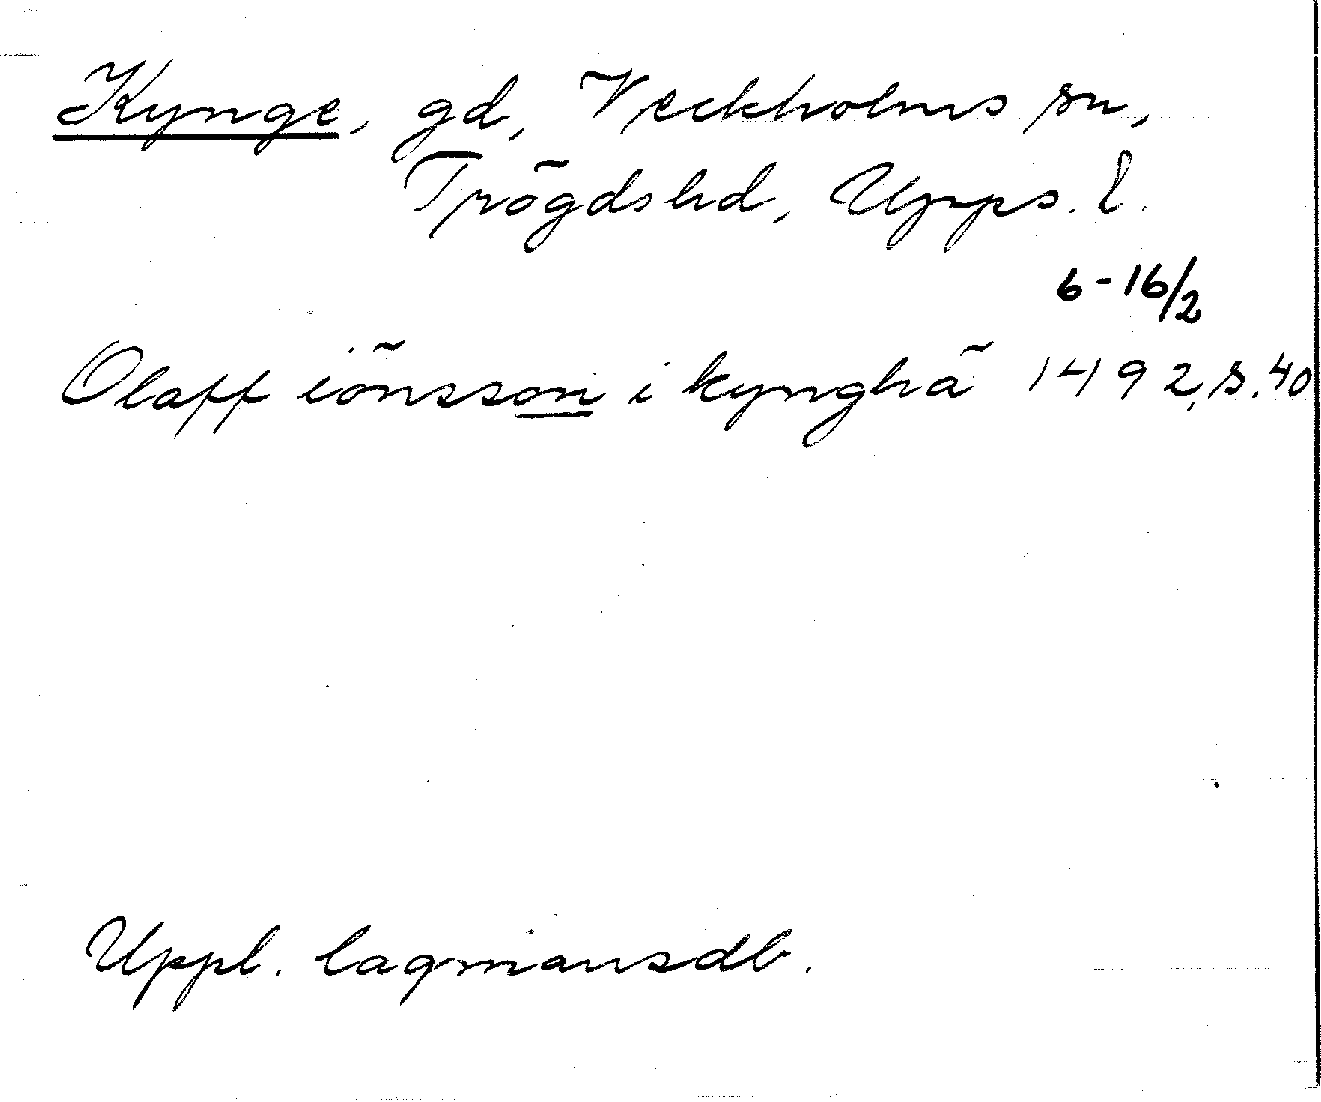 Kynge, gd, Veckholms sn,
Trögds hd, Upps. l.
6-16/2
Olaff iönsson i kynghä 1492, s. 40
Uppl. lagmansdb.